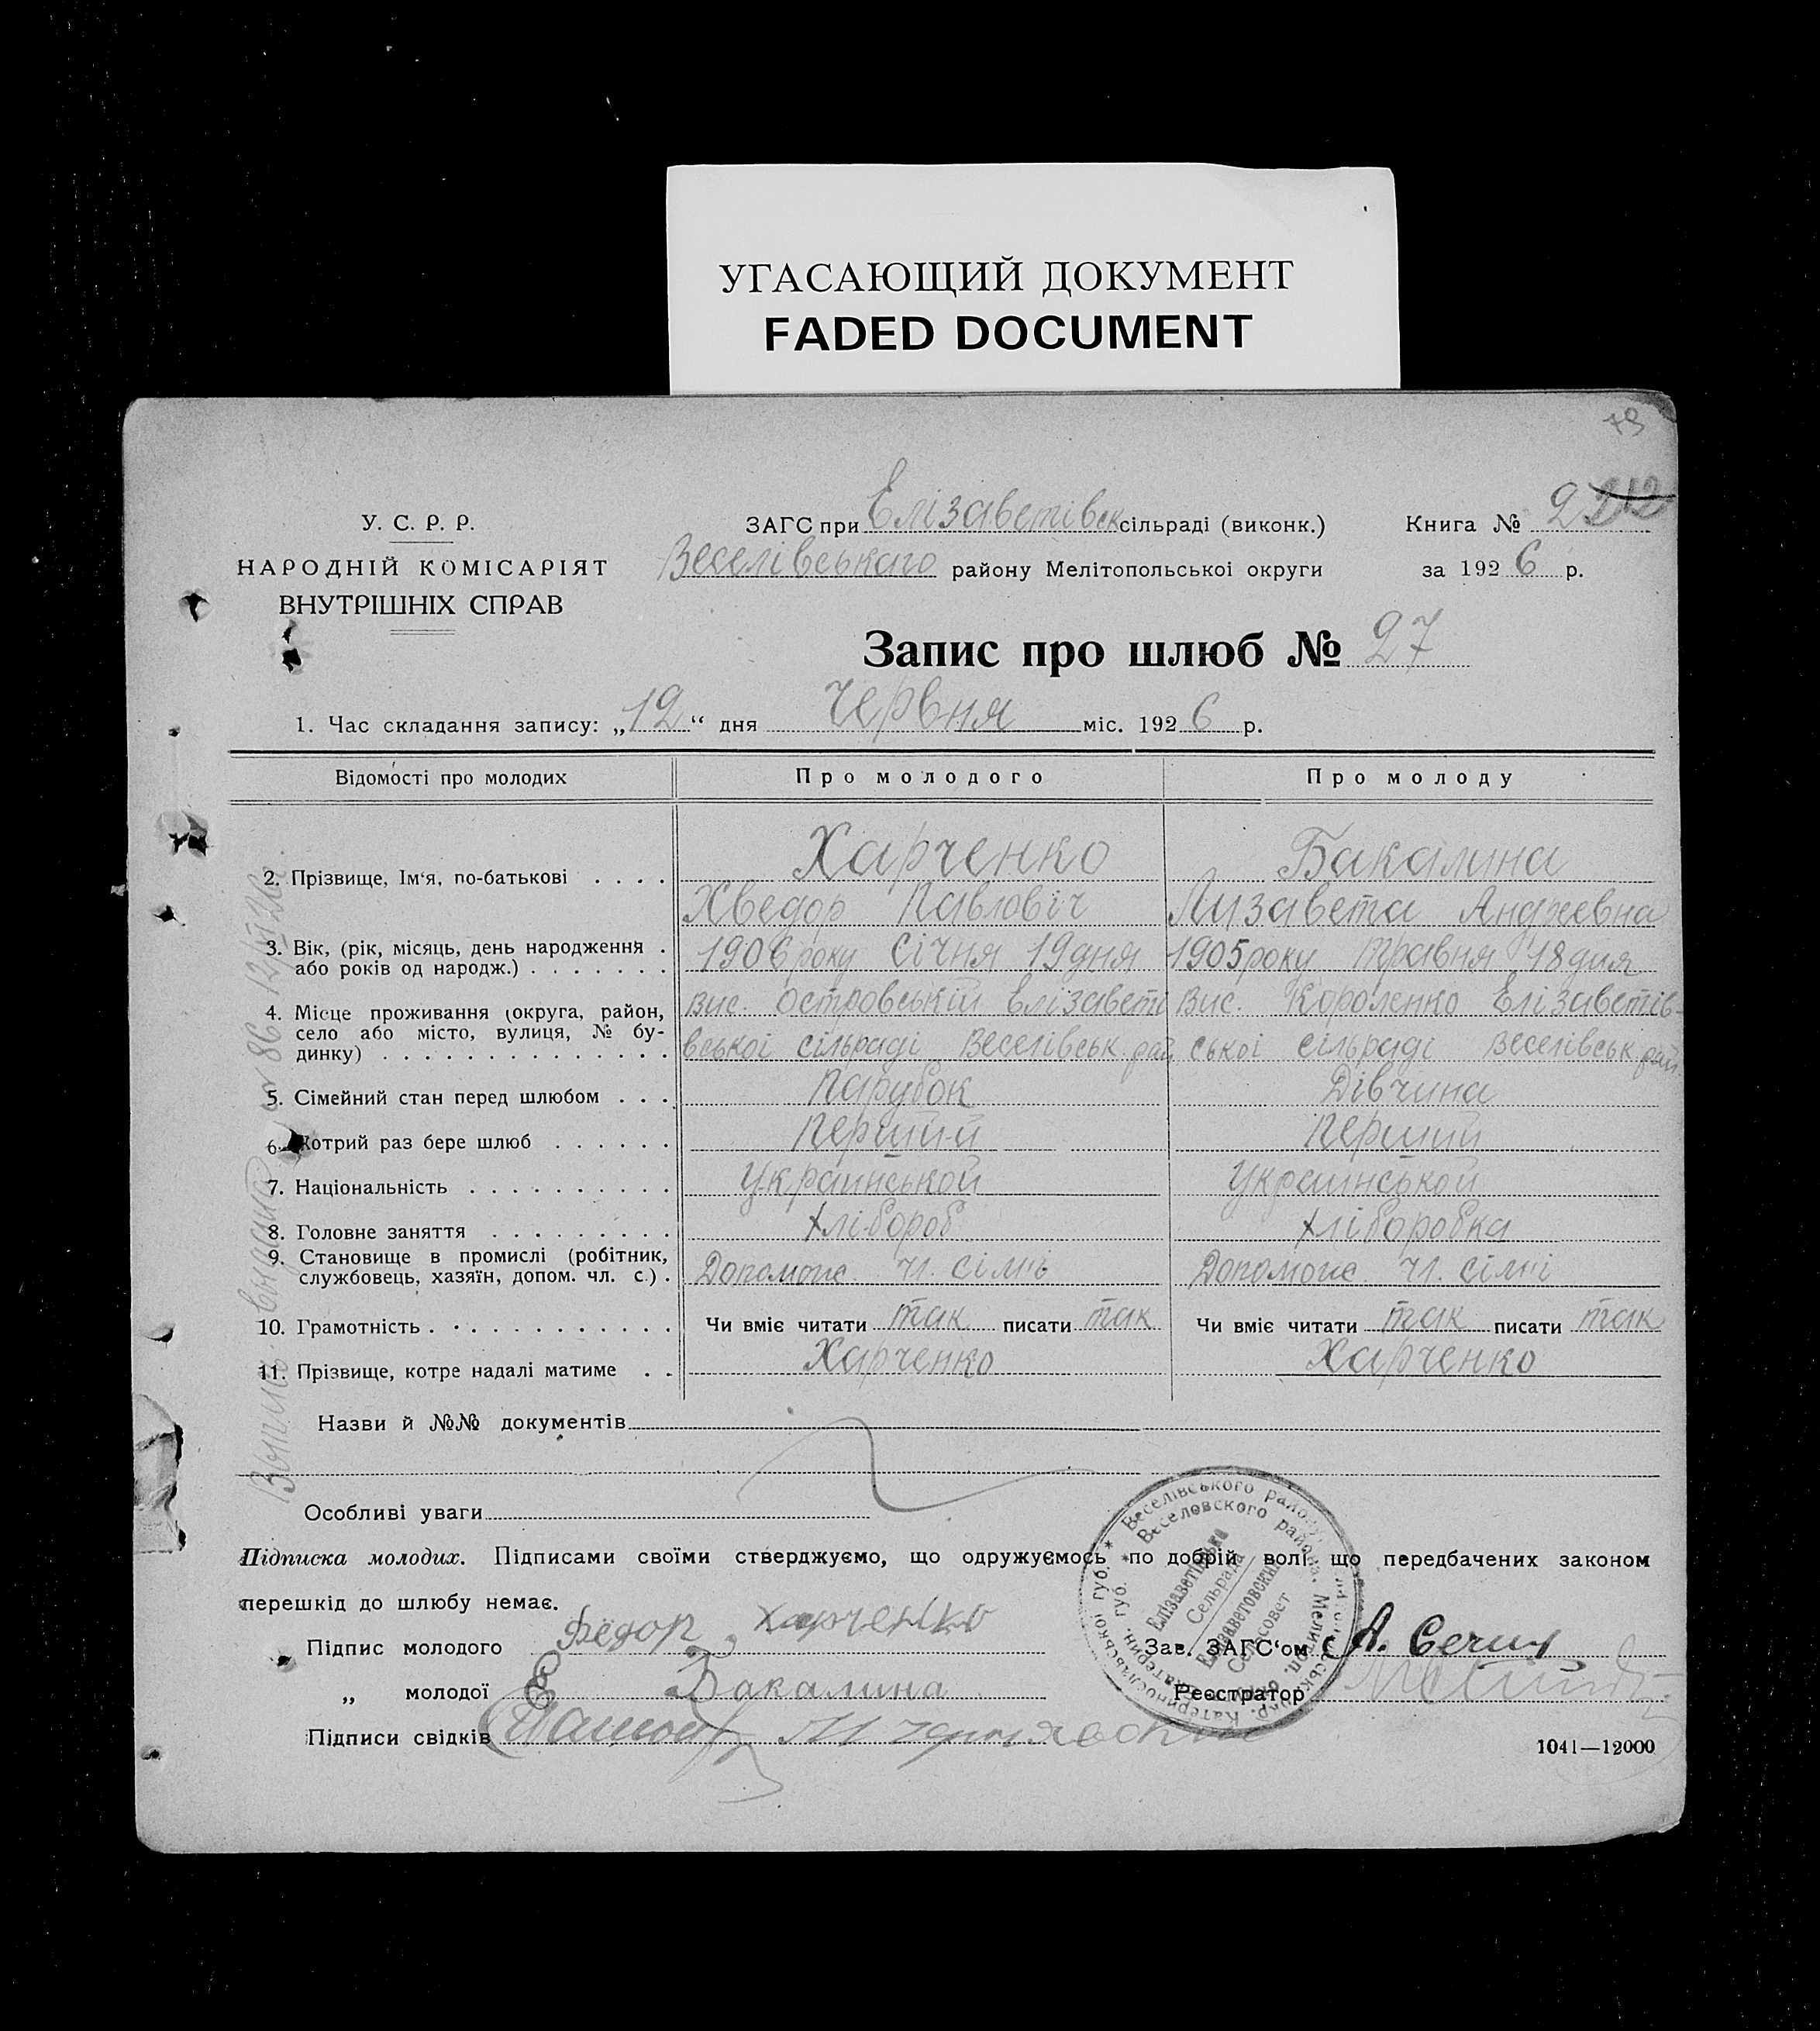 УГАСАЮЩИЙ ДОКУМЕНТ
FADED DOCUMENT
79
У. С. Р. Р.
НАРОДНІЙ КОМІСАРІЯТ
ВНУТРІШНІХ СПРАВ
ЗАГС при Елізаветівск сільраді (виконк.)
Веселівського району Мелітопольської округи
Книга № 2
за 1926 р.
Запис про шлюб № 27
1. Час складання запису: „12“ дня Червня міс. 1926 р.
Відомості про молодих
Про молодого
Про молоду
2. Прізвище, Ім‘я, по-батькові . . . .
Харченко
Хведор Павловіч
Бакалина
Лизавета Андреевна
3. Вік, (рік, місяць, день народження .
або років од народж.) . . . . . . .
1906 року Січня 19 дня
1905 року травня 18 дня
4. Місце проживання (округа, район,
село або місто, вулиця, № бу-
динку) . . . . . . . . . . . . . .
вис. Островській Елізавети
вської сільраді Веселівськ рай.
вис. Короленко Елізаветів-
ської сільраді Веселівськ рай.
5. Сімейний стан перед шлюбом . . .
Парубок
Дівчина
6. Котрий раз бере шлюб . . . . . .
Перший
Перший
7. Національність . . . . . . . . . .
Українськой
Українськой
8. Головне заняття . . . . . . . . .
хлібороб
хліборобка
9. Становище в промислі (робітник,
службовець, хазяїн, допом. чл. с.) .
Допомога чл. сімі
Допомога чл. сімі
10. Грамотність . . . . . . . . . . . .
Чи вміє читати так писати так
Чи вміє читати так писати так
11. Прізвище, котре надалі матиме . .
Харченко
Харченко
Назви й №№ документів
Особливі уваги
Підписка молодих. Підписами своїми стверджуємо, що одружуємось по добрій волі що передбачених законом
перешкід до шлюбу немає.
Підпис молодого Фёдор Харченко
„ молодої Е Бакалина
Підписи свідків
Зав. ЗАГС‘ом
Реєстратор
1041—12000
Веселівського району
Веселовского района. Мелитоп.
Елізаветівська
Сельрада
Елизаветовский
Сельсовет